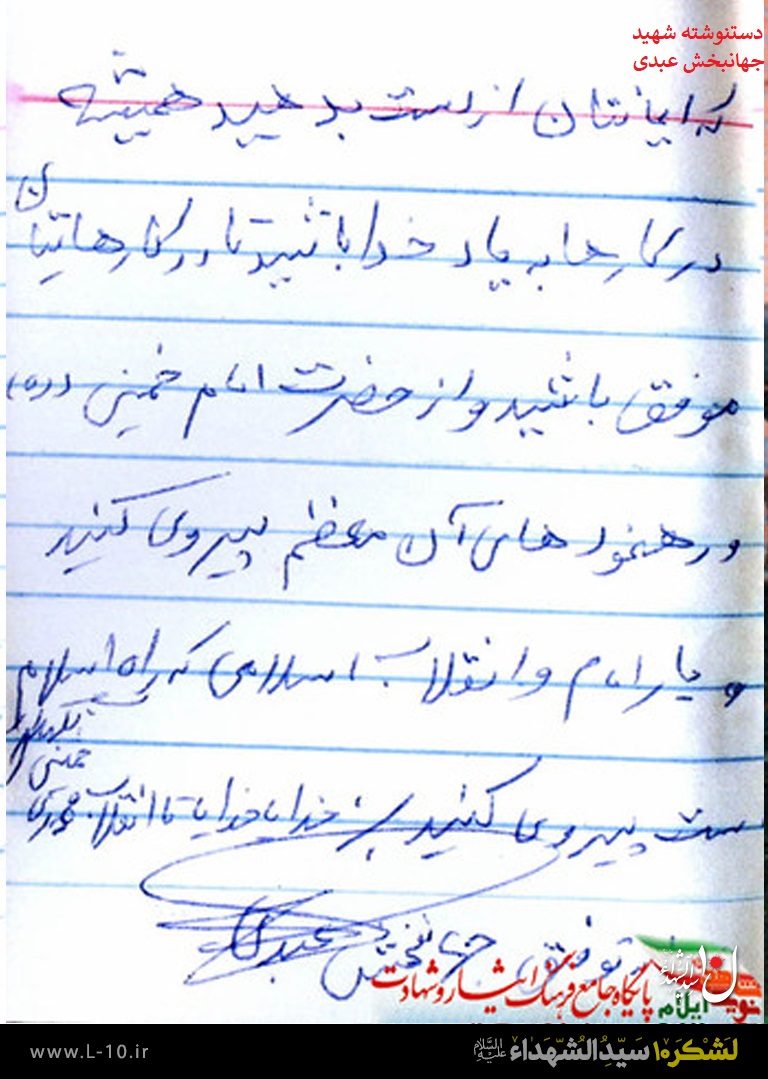 دستنوشته شهید
جهانبخش عبدی
که ایمانتان از دست بدهید همیشه
در کارها به یاد خدا باشید تا در کارهایتان
موفق باشید و از حضرت امام خمینی (ره)
و رهنمودهای آن معظم پیروی کنید
و یار امام و انقلاب اسلامی که راه اسلام
ست پیروی کنید خدایا خدایا تا انقلاب مهدی
خمینی
نگهدار
توفیق جهانبخش عبدی
پایگاه جامع فرهنگ ایثار و شهادت
ایلام
www.L-10.ir
لشکر ۱۰ سیدالشهداء علیه السلام